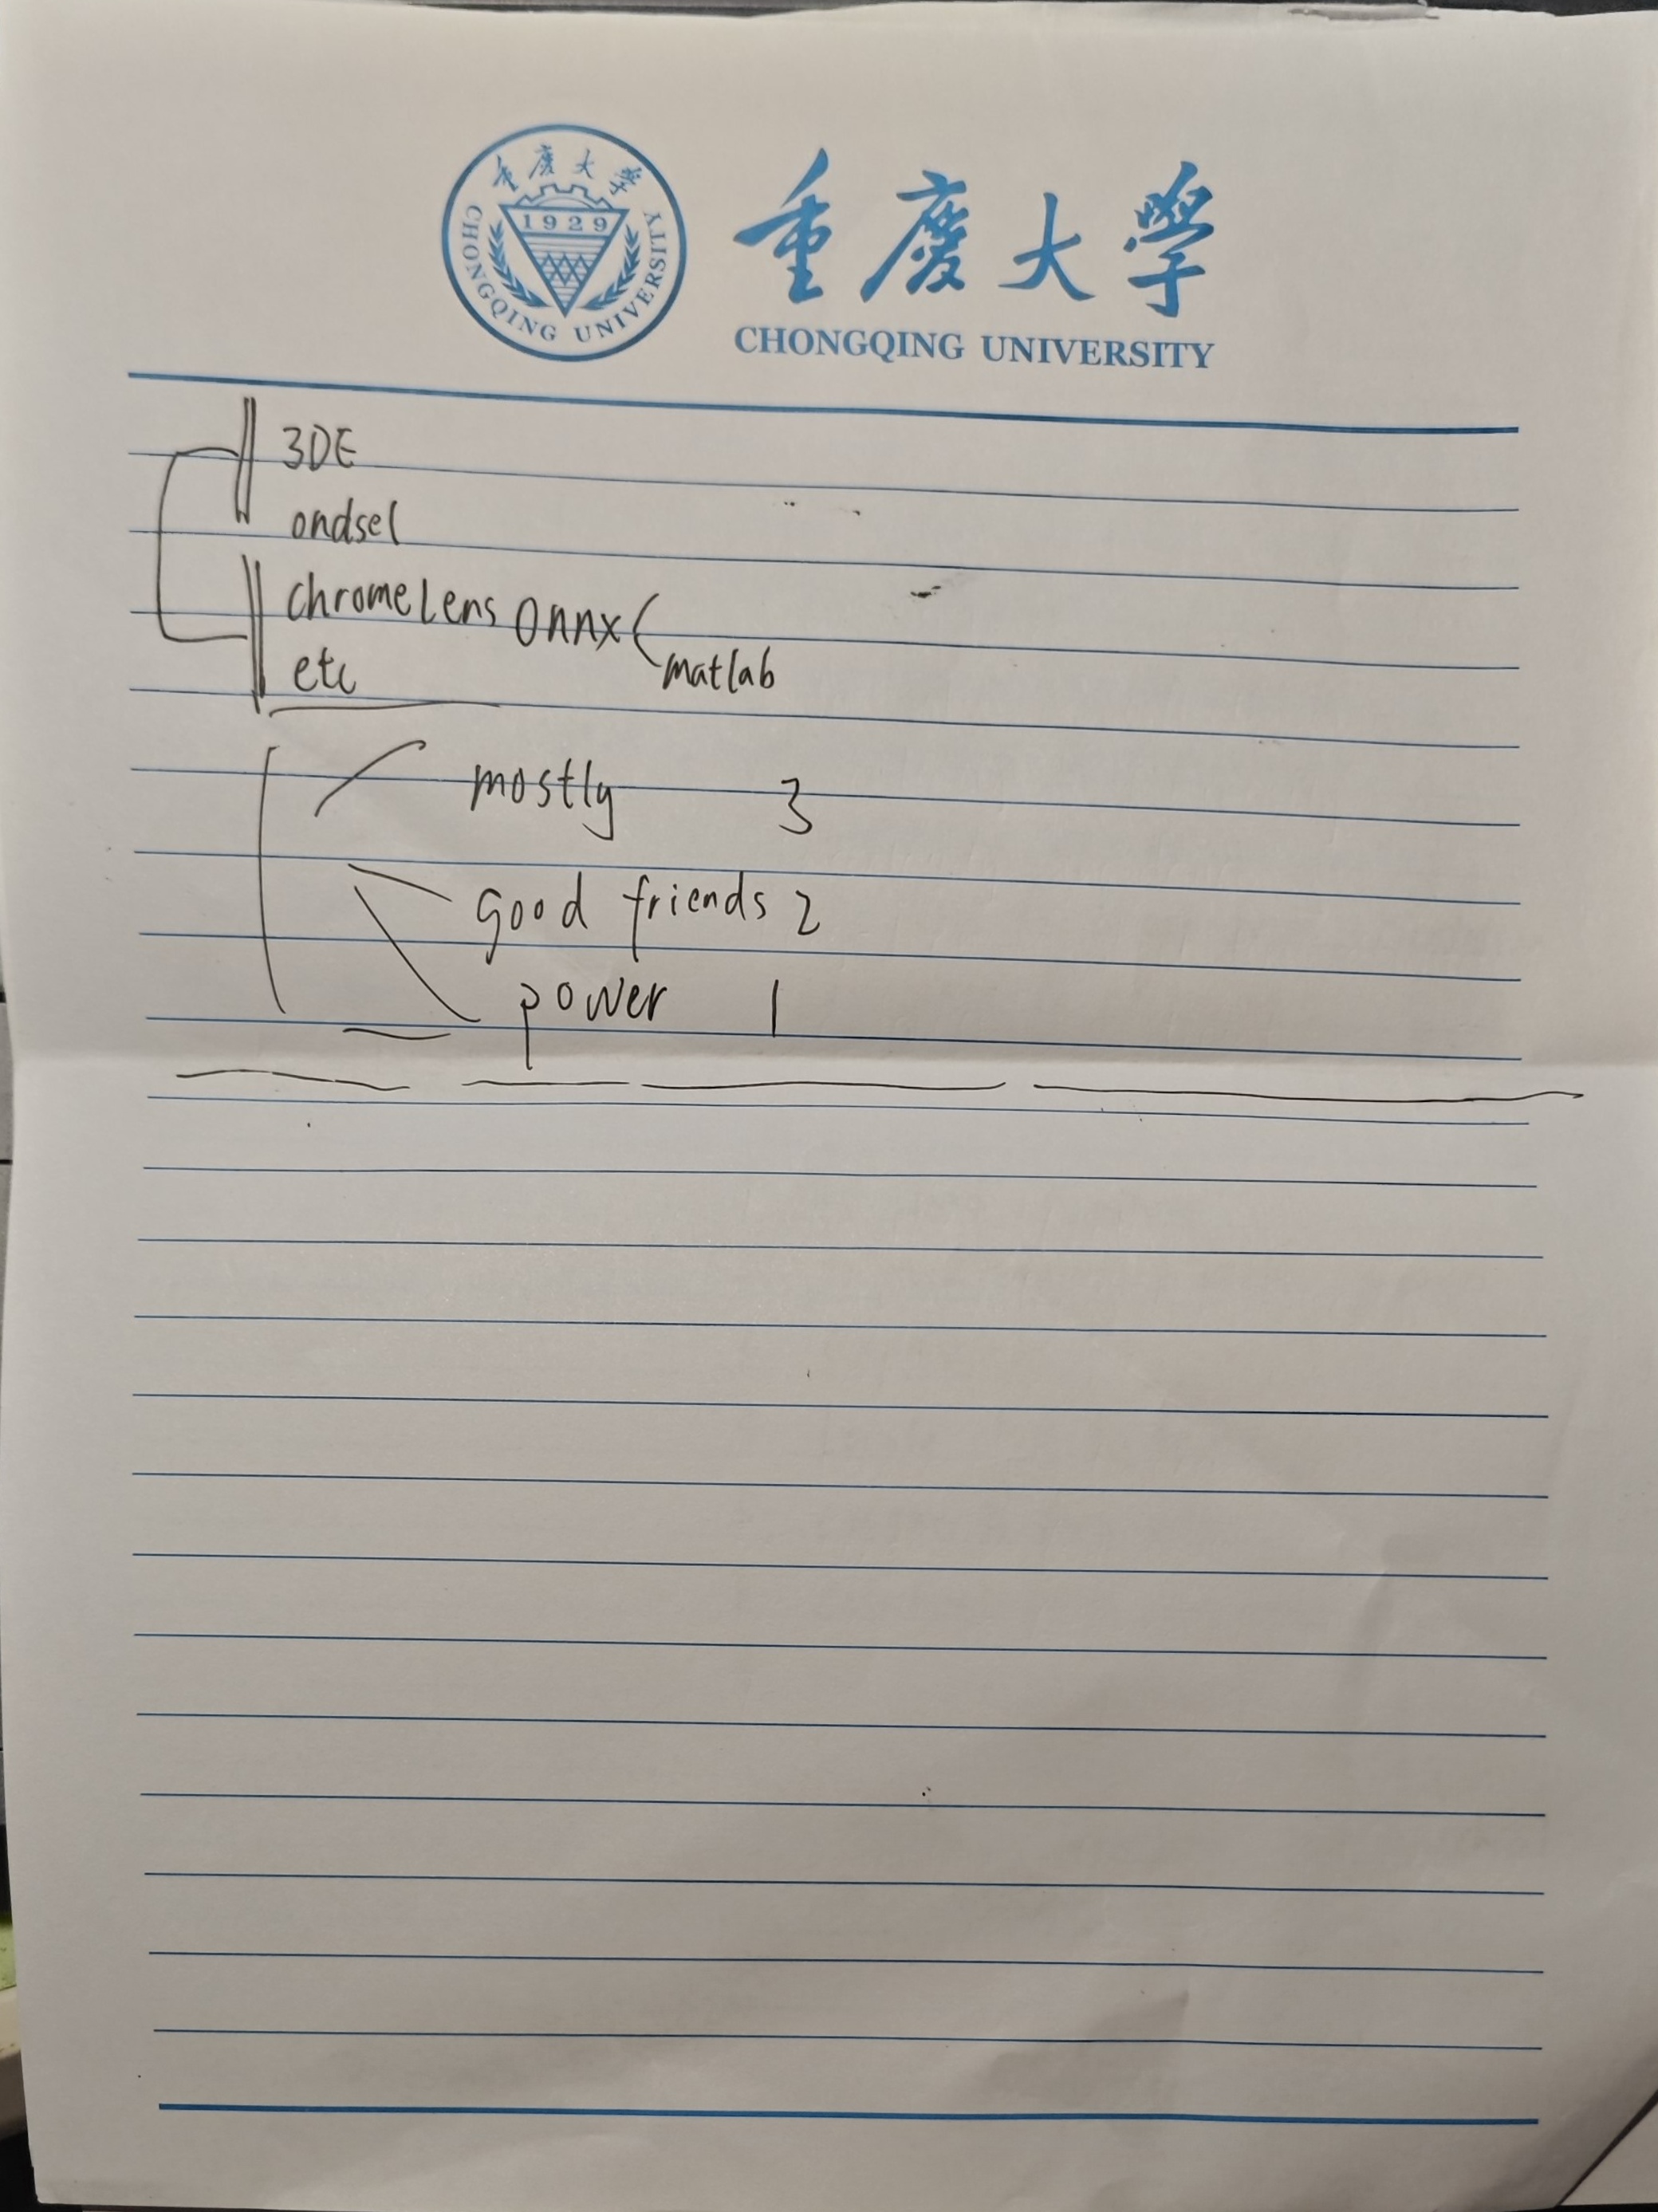 重慶大學
1929
CHONGQING UNIVERSITY
重慶大學
CHONGQING UNIVERSITY
3DE
ondsel
chromeLens Onnx (
matlab
etc
mostly 3
good friends 2
power 1